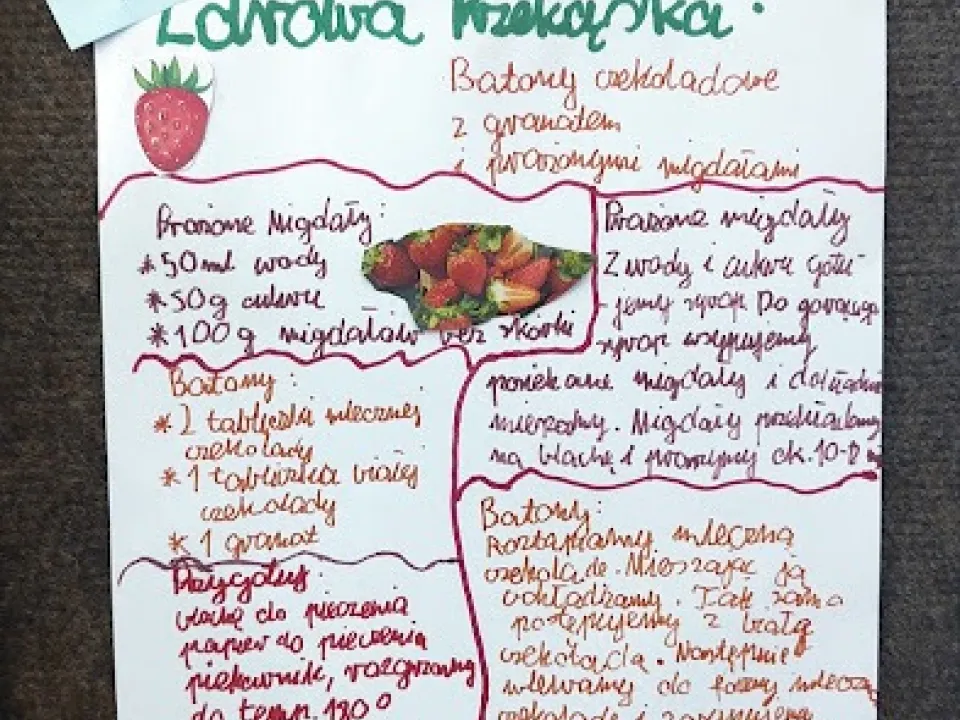 Zdrowa Przekąska.
Batony czekoladowe
z granatem
i prażonymi migdałami
Prażone Migdały:
*50ml wody
*50g cukru
*100g migdałów bez skórki
Prażone migdały
Z wody i cukru gotu-
jemy syrop. Do gorącego
syropu wsypujemy
posiekane migdały i dokładnie
mieszamy. Migdały przekładamy
na blachę i prażymy ok. 10-
Batony:
*2 tabliczki mlecznej
czekolady
*1 tabliczka białej
czekolady
*1 granat
Przygotuj:
blachę do pieczenia
papier do pieczenia
piekarnik, rozgrzany
do temp. 180°
Batony:
Roztapiamy mleczną
czekoladę. Mieszając ją
ochładzamy. Tak samo
postępujemy z białą
czekoladą. Następnie
wlewamy do formy mleczną
czekoladę i